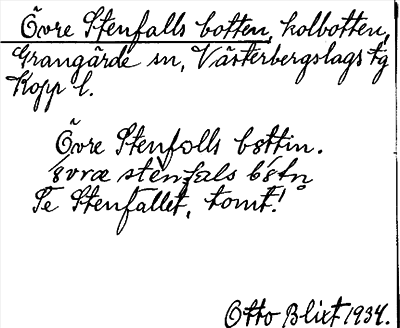 Övre Stenfalls botten, kolbotten,
Grangärde sn, Västerbergslags tg
Kopp l.
Övre Stenfalls bottin.
övræ stènfals bòtn̥
Se Stenfallet, tomt!
Otto Blixt 1934.